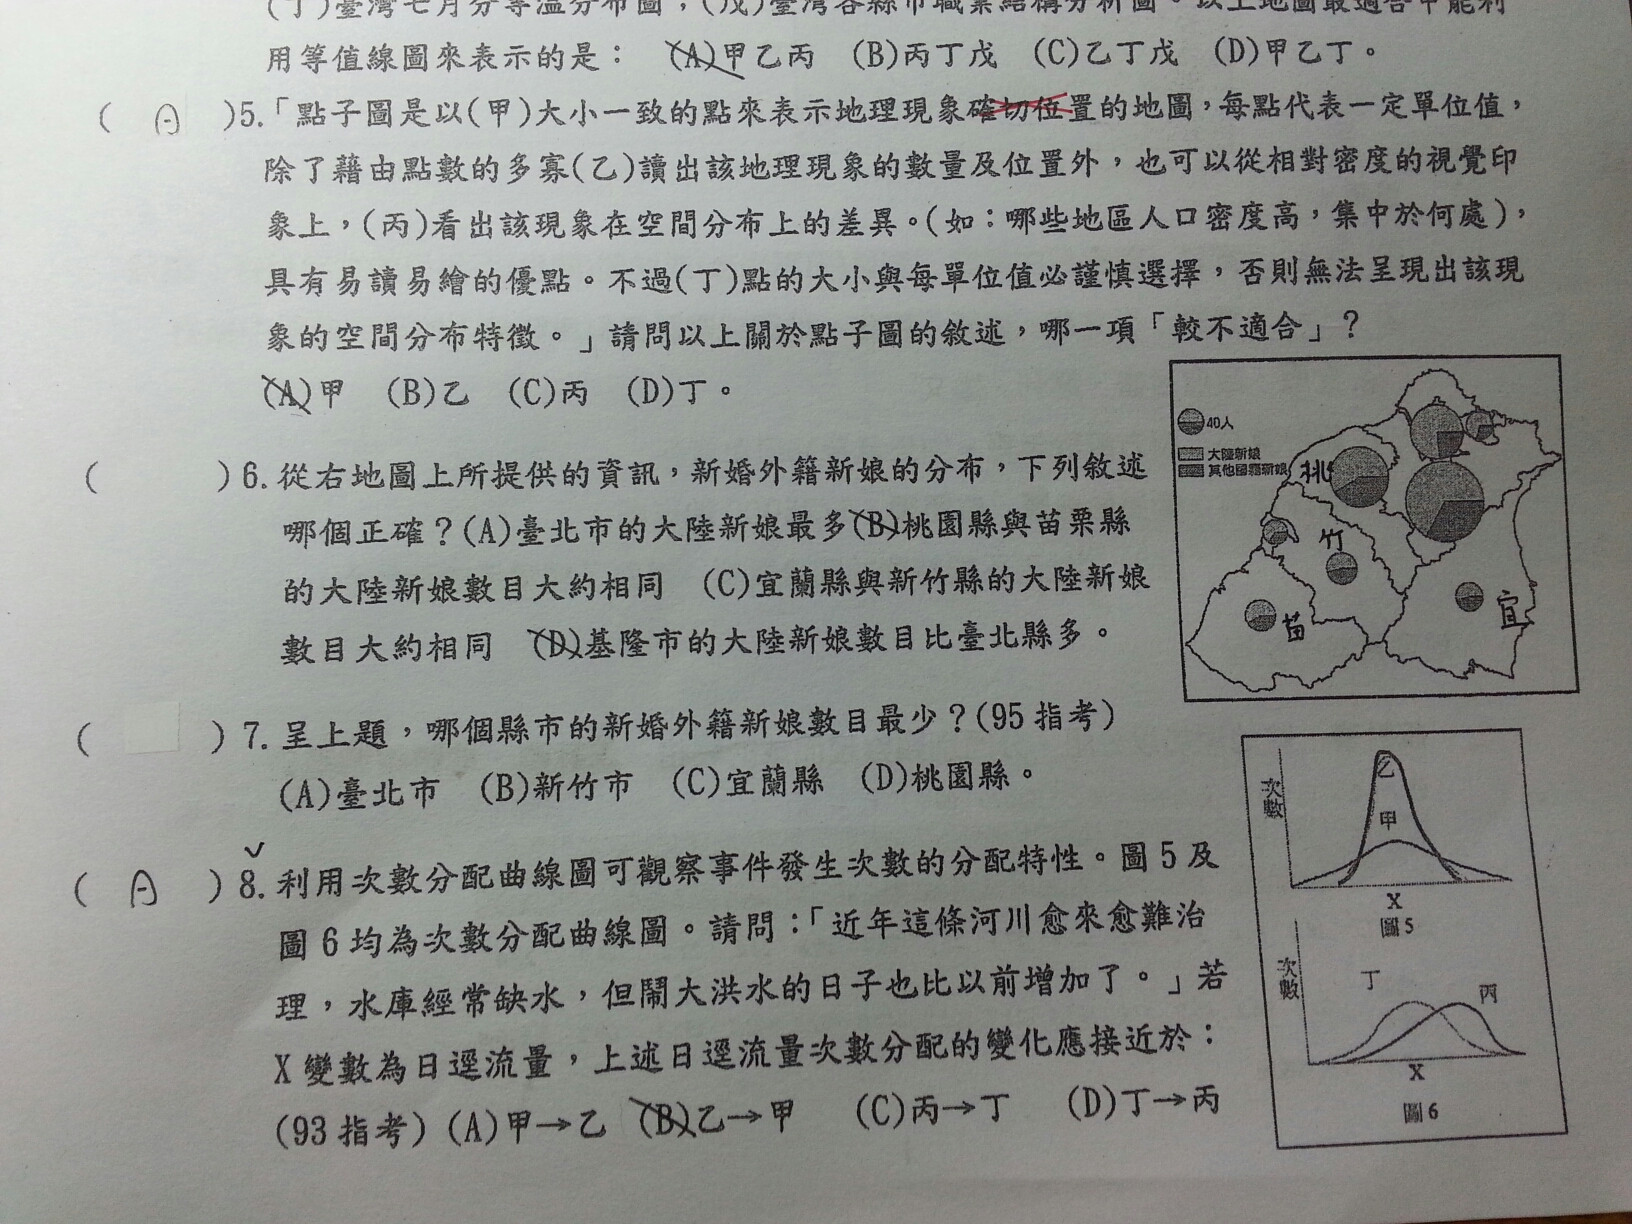 (丁)臺灣七月分等溫分布圖，(戊)臺灣各縣市職業結構分析圖。以上地圖最適合中能利
用等值線圖來表示的是： (A)甲乙丙 (B)丙丁戊 (C)乙丁戊 (D)甲乙丁。
( A )5.「點子圖是以(甲)大小一致的點來表示地理現象確切位置的地圖，每點代表一定單位值，
除了藉由點數的多寡(乙)讀出該地理現象的數量及位置外，也可以從相對密度的視覺印
象上，(丙)看出該現象在空間分布上的差異。(如：哪些地區人口密度高，集中於何處)，
具有易讀易繪的優點。不過(丁)點的大小與每單位值必謹慎選擇，否則無法呈現出該現
象的空間分布特徵。」請問以上關於點子圖的敘述，哪一項「較不適合」？
(A)甲 (B)乙 (C)丙 (D)丁。
( )6.從右地圖上所提供的資訊，新婚外籍新娘的分布，下列敘述
哪個正確？(A)臺北市的大陸新娘最多(B)桃園縣與苗栗縣
的大陸新娘數目大約相同 (C)宜蘭縣與新竹縣的大陸新娘
數目大約相同 (D)基隆市的大陸新娘數目比臺北縣多。
40人
大陸新娘
其他國籍新娘
桃
竹
苗
宜
( )7.呈上題，哪個縣市的新婚外籍新娘數目最少？(95指考)
(A)臺北市 (B)新竹市 (C)宜蘭縣 (D)桃園縣。
( A )8.利用次數分配曲線圖可觀察事件發生次數的分配特性。圖5及
圖6均為次數分配曲線圖。請問：「近年這條河川愈來愈難治
理，水庫經常缺水，但鬧大洪水的日子也比以前增加了。」若
X變數為日逕流量，上述日逕流量次數分配的變化應接近於：
(93指考) (A)甲→乙 (B)乙→甲 (C)丙→丁 (D)丁→丙
次數
乙
甲
X
圖5
次數
丁
丙
X
圖6